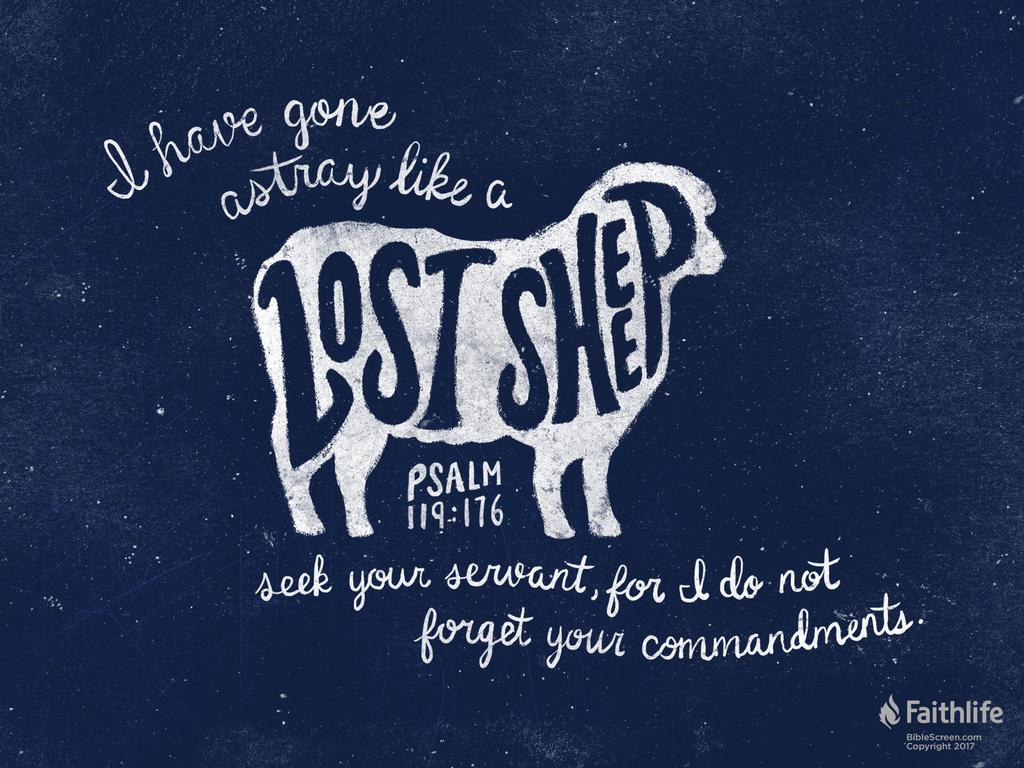 I have gone
astray like a
LOST SHEEP
PSALM
119:176
seek your servant, for I do not
forget your commandments.
Faithlife
BibleScreen.com
Copyright 2017